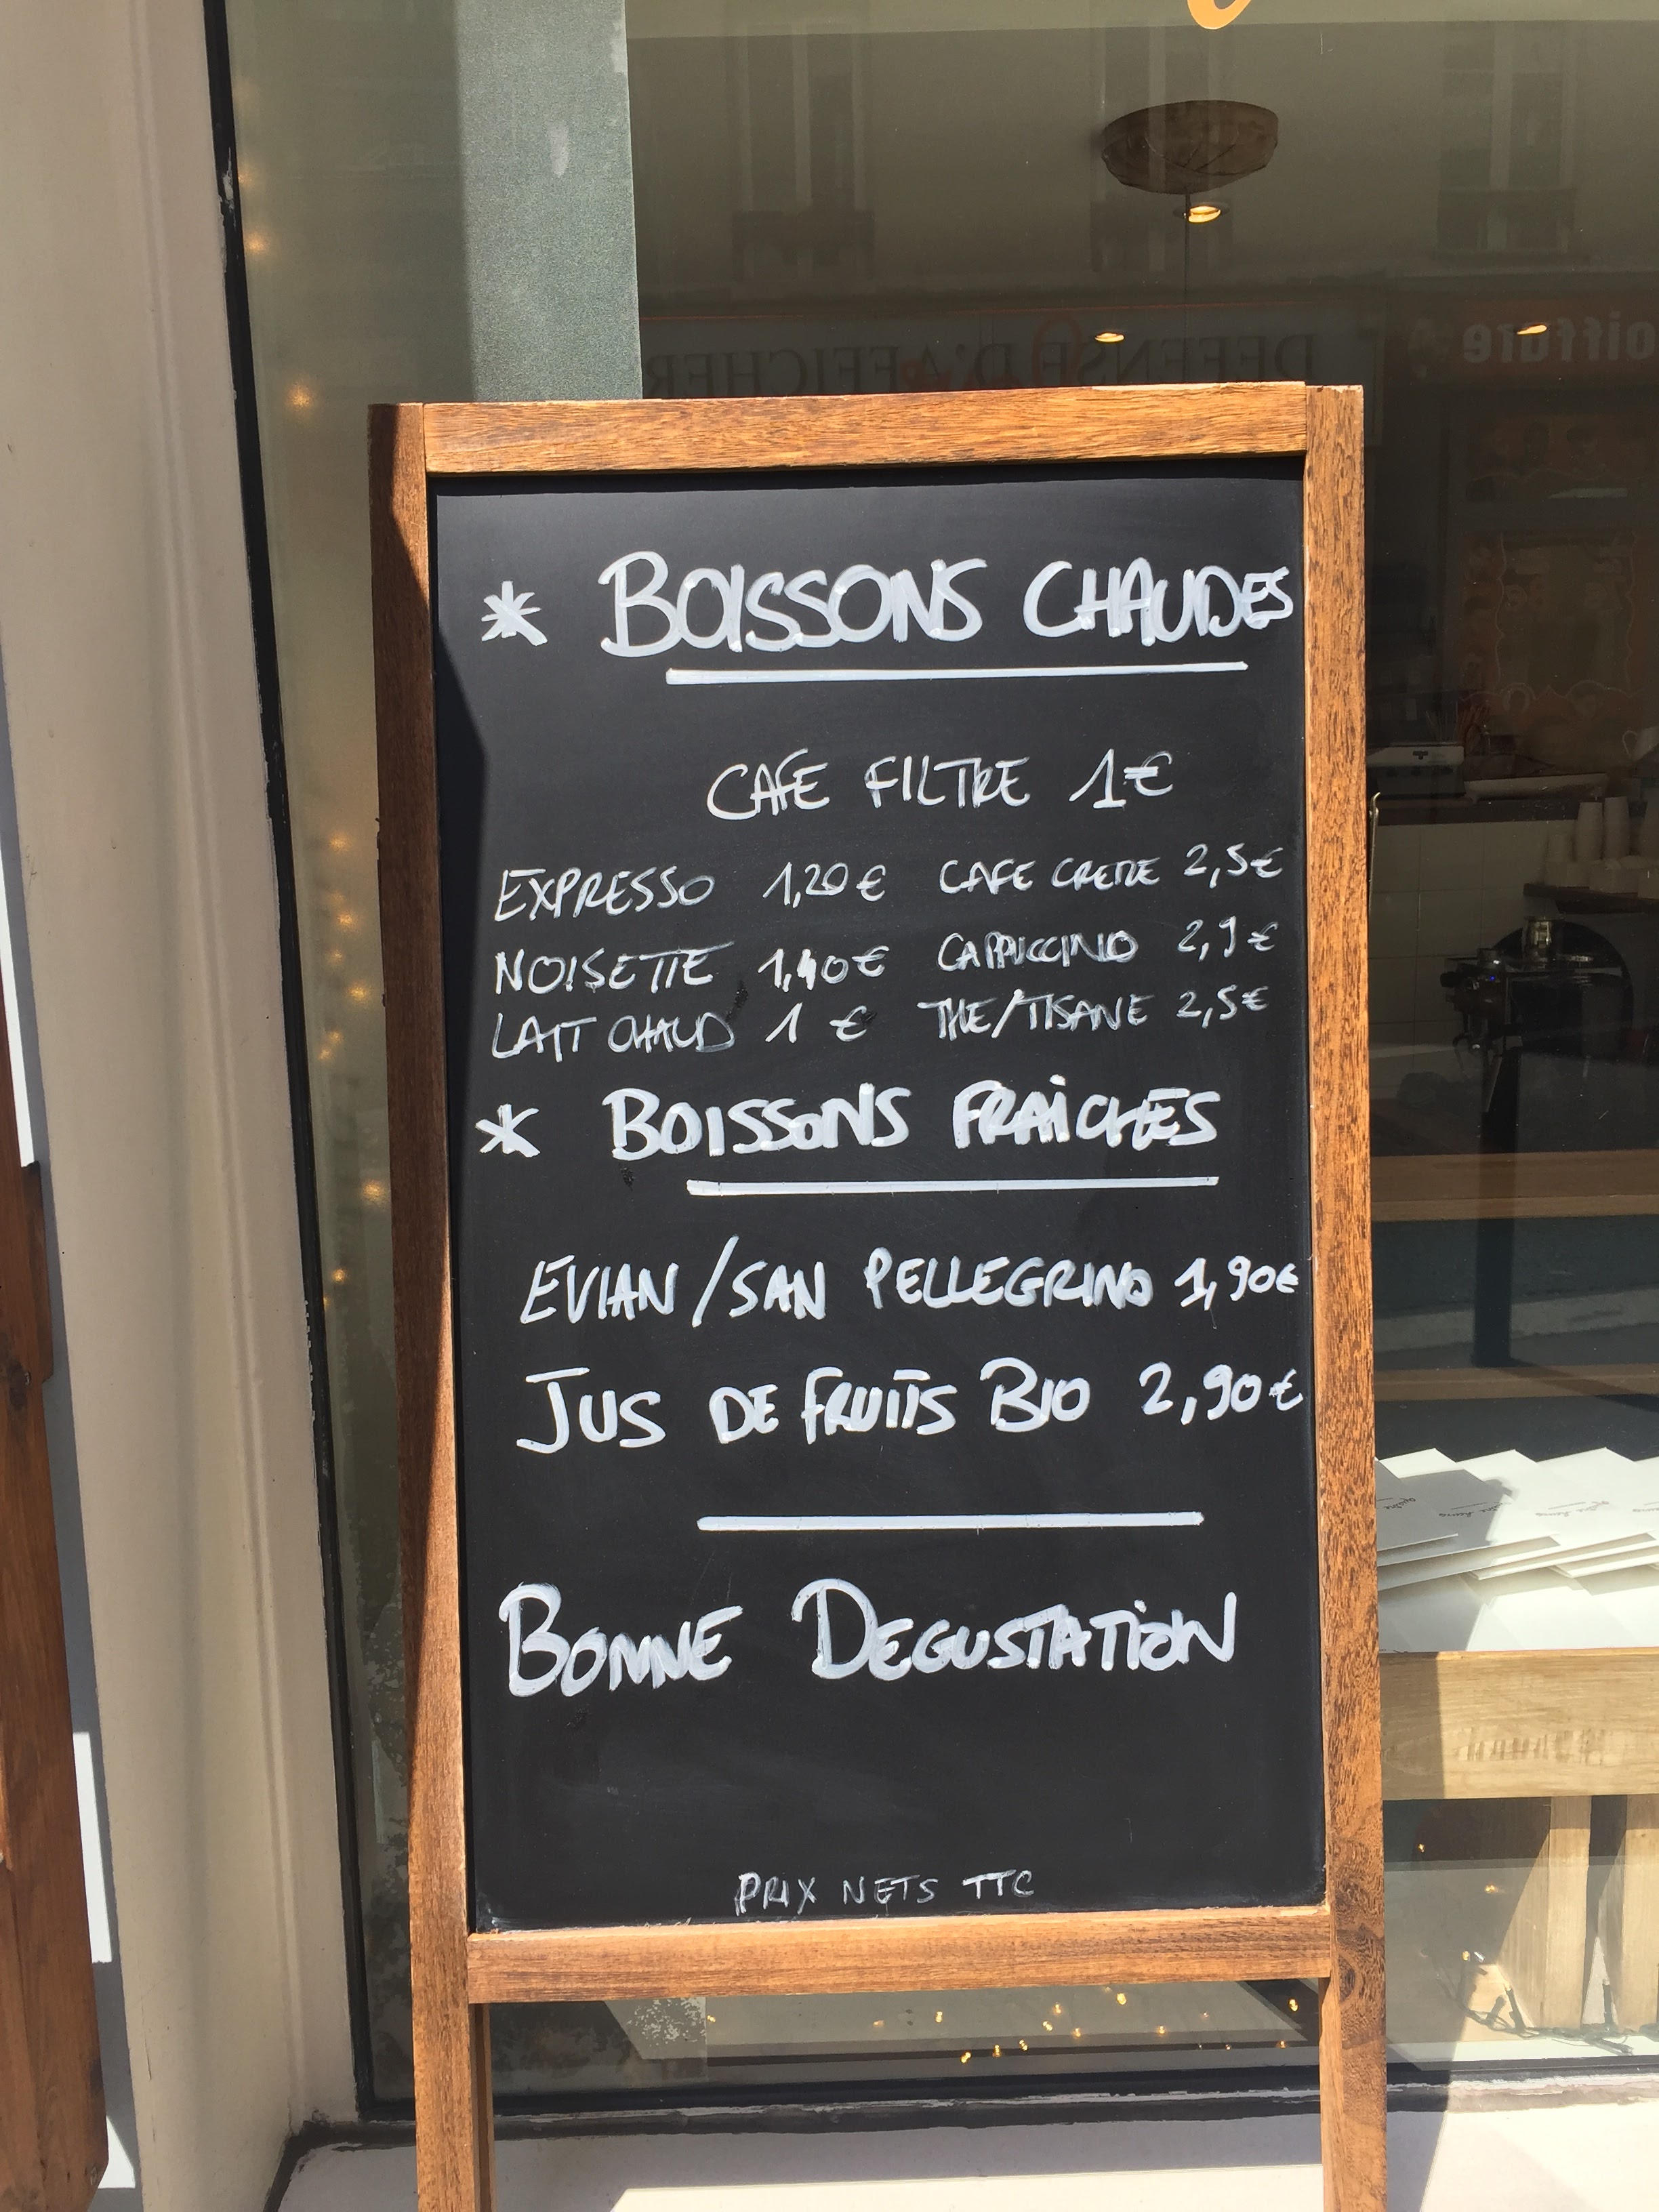 * BOISSONS CHAUDES
CAFE FILTRE 1€
EXPRESSO 1,20€ CAFE CREME 2,5€
NOISETTE 1,40€ CAPPUCCINO 2,9€
LAIT CHAUD 1 € THE/TISANE 2,5€
* BOISSONS FRAÎCHES
EVIAN/SAN PELLEGRINO 1,90€
JUS DE FRUITS BIO 2,90€
BONNE DEGUSTATION
PRIX NETS TTC
DEFENSE D'AFFICHER